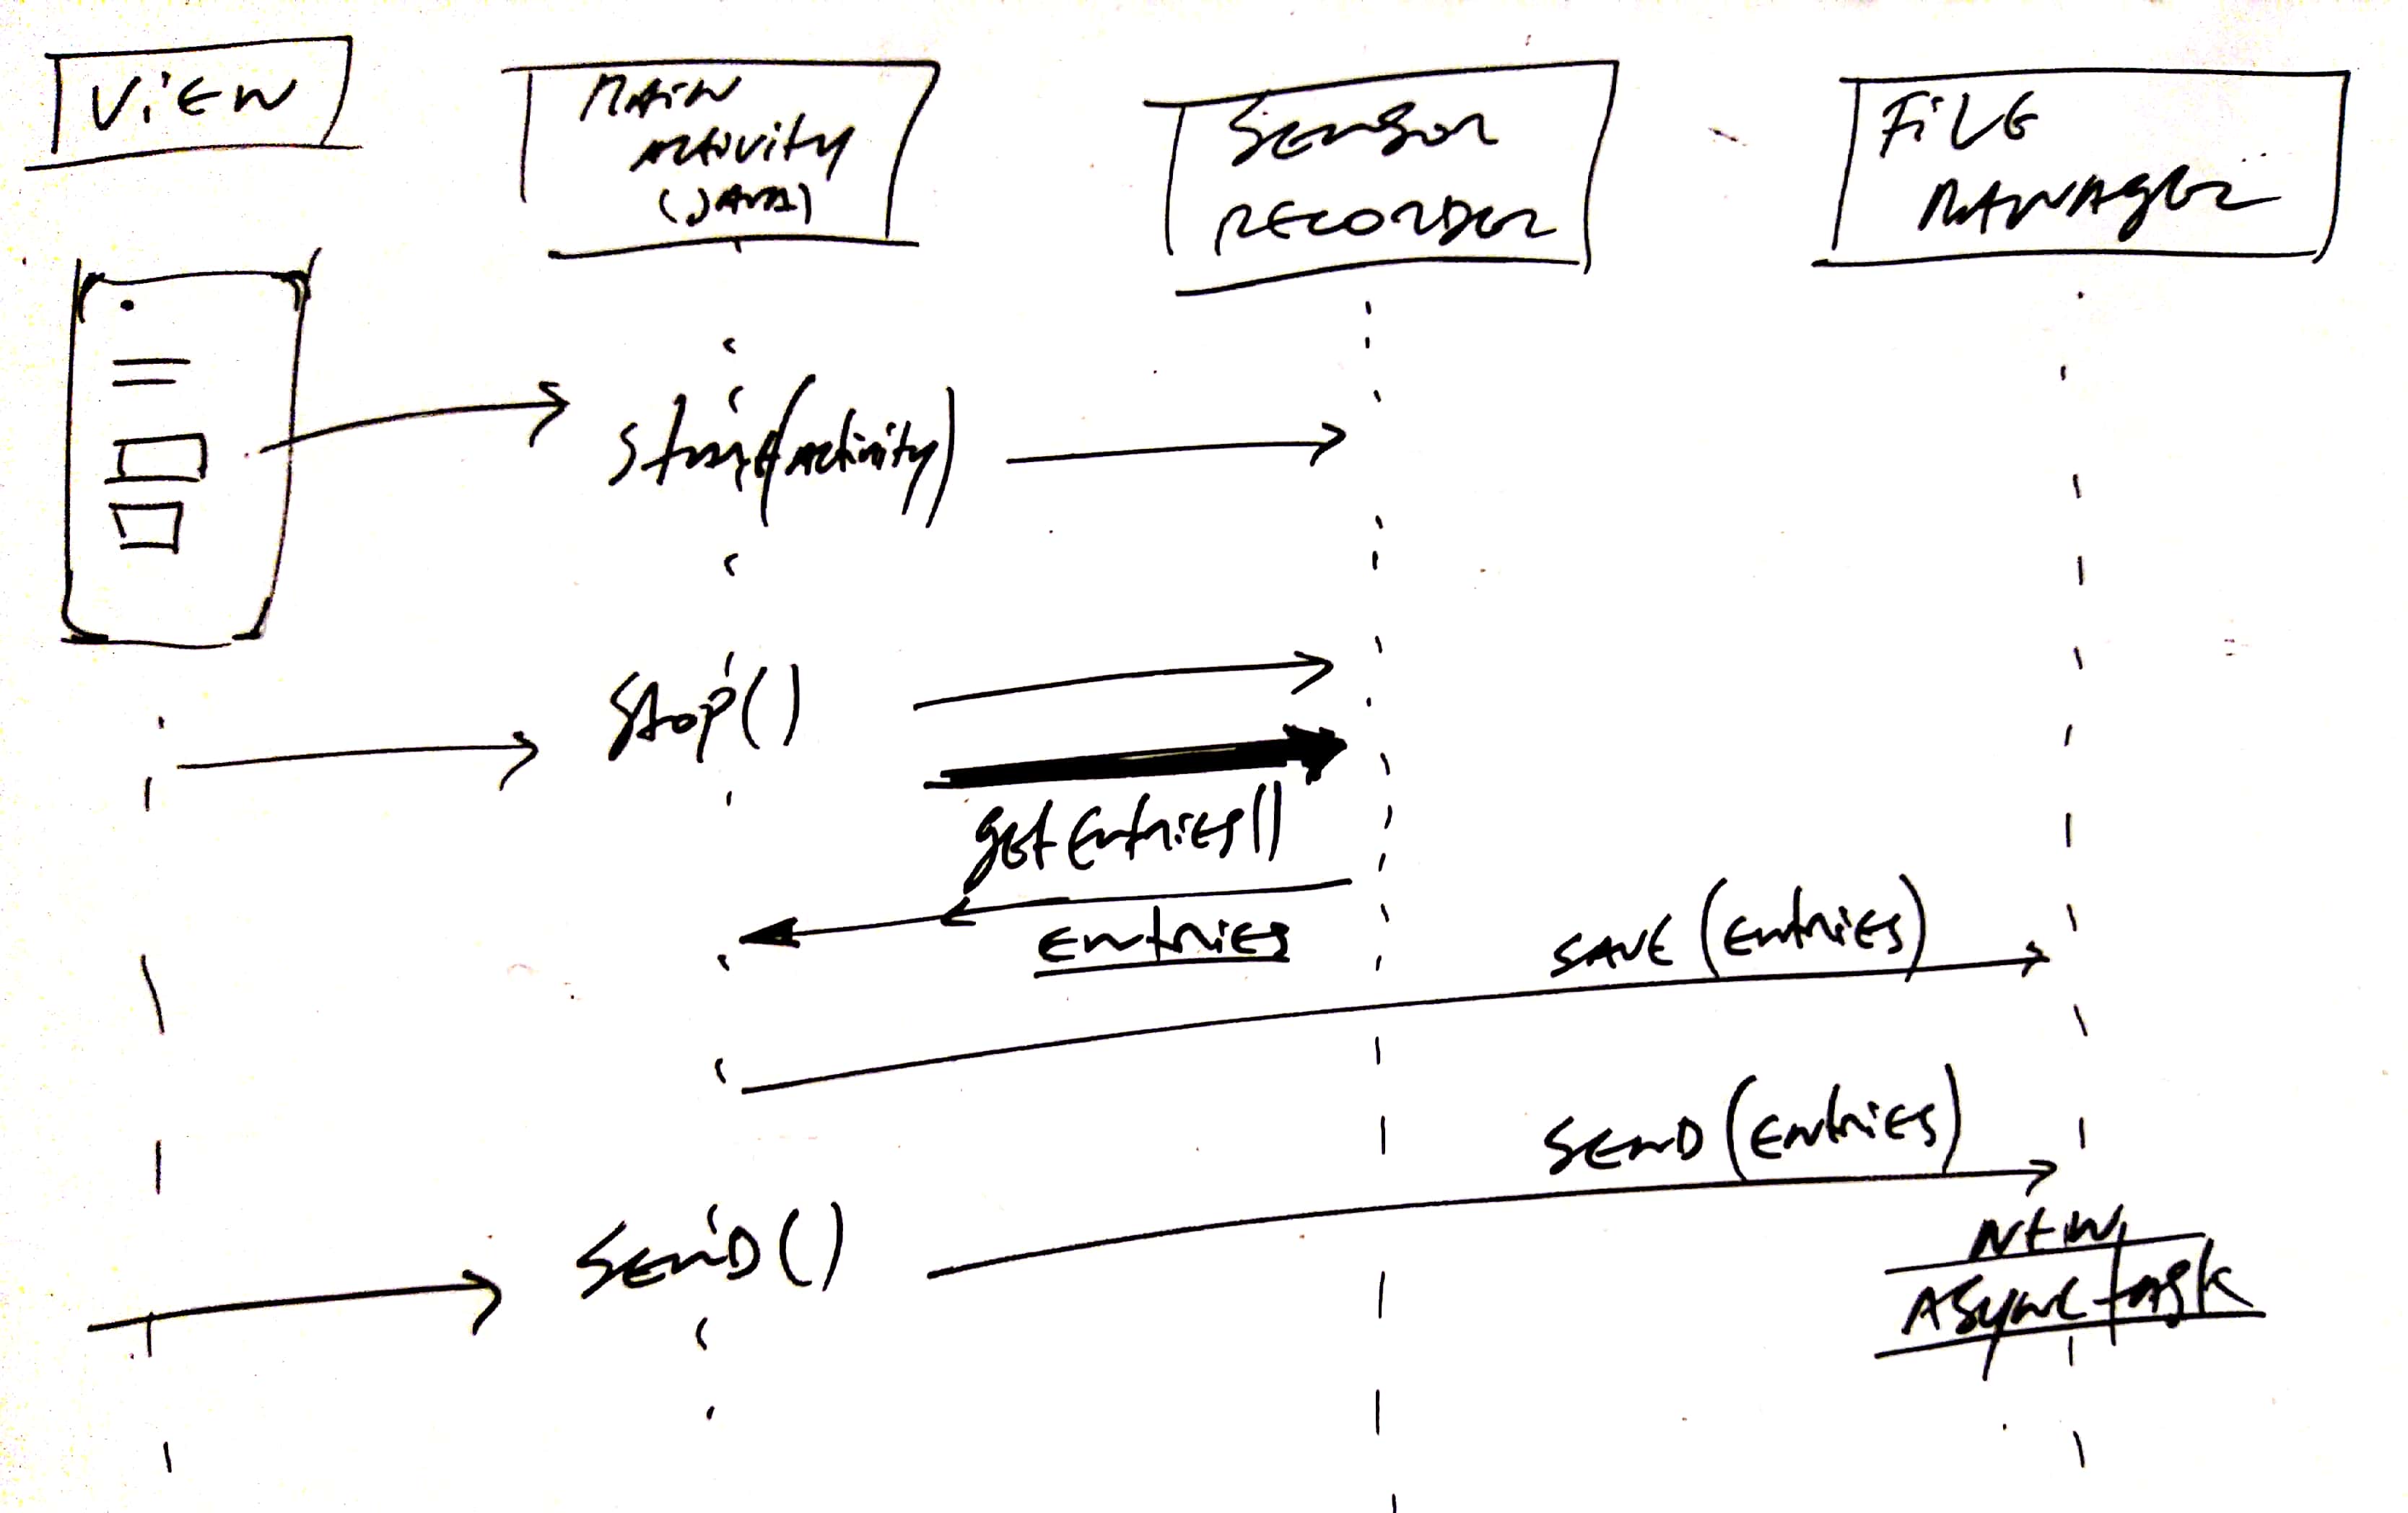 ViEW
MAiN
Activity
(JAVA)
SENSOR
RECORDER
FiLE
MANAGER
Start(activity)
Stop()
getEntries()
Entries
SAVE (Entries)
SEND (Entries)
SEND()
NEW
ASyncTask